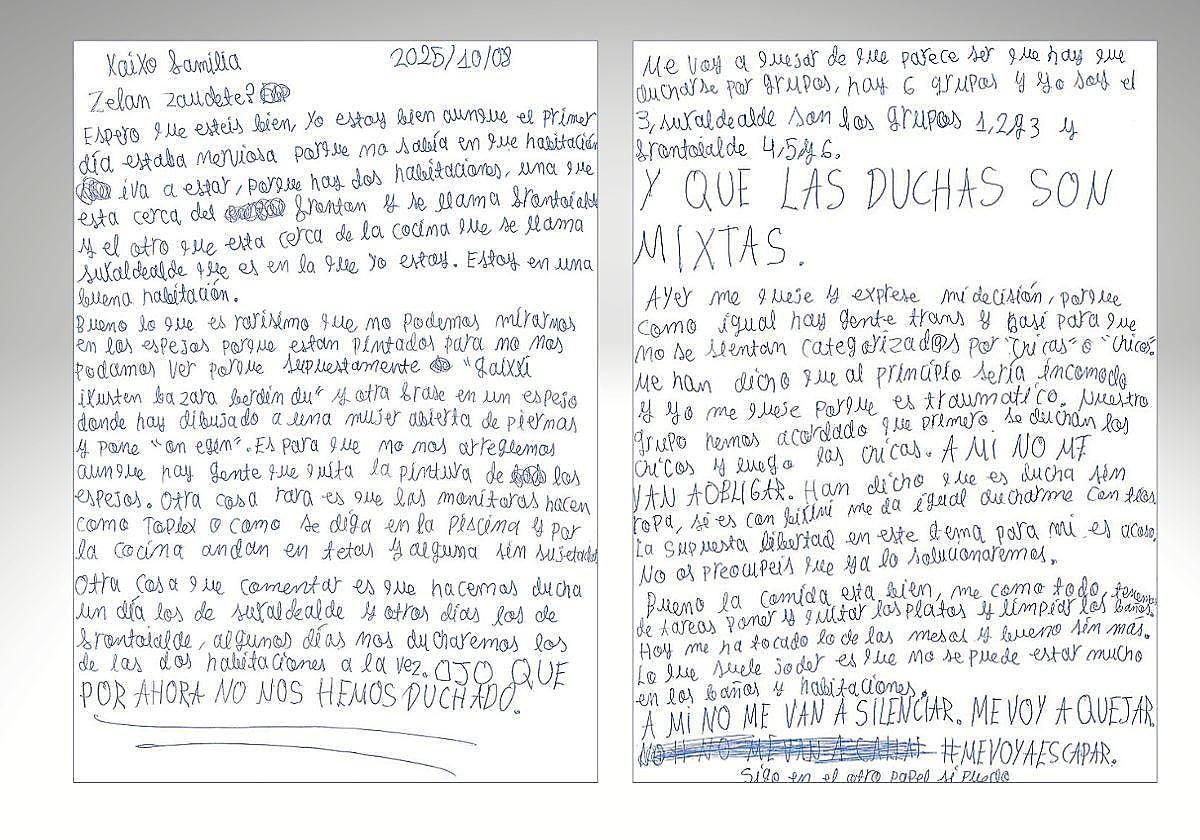 Kaixo familia 2025/10/08
Zelan zaudete?
Espero que esteis bien, yo estoy bien aunque el primer
día estaba nerviosa porque no sabía en que habitación
iva a estar, porque hay dos habitaciones, una que
esta cerca del frontan y se llama frontoialde
y el otro que esta cerca de la cocina que se llama
sukaldealde que es en la que yo estoy. Estoy en una
buena habitación.
Bueno lo que es rarísimo que no podemos mirarnos
en los espejos porque están pintados para no nos
podamos ver porque supuestamente "gaixki
ikusten bazara berdin du" y otra frase en un espejo
donde hay dibujado a una mujer abierta de piernas
y pone "on egin". Es para que no nos arreglemos
aunque hay gente que quita la pintura de los
espejos. Otra cosa rara es que las monitoras hacen
como Toplex o como se diga en la piscina y por
la cocina andan en tetas y alguna sin sujetador
Otra cosa que comentar es que hacemos ducha
un día los de sukaldealde y otros días los de
frontoialde, algunos días nos ducharemos los
de las dos habitaciones a la vez. OJO QUE
POR AHORA NO NOS HEMOS DUCHADO.
Me voy a quejar de que parece ser que hay que
ducharse por grupos, hay 6 grupos y yo soy el
3, sukaldealde son los grupos 1,2y3 y
frontoialde 4,5y6.
Y QUE LAS DUCHAS SON
MIXTAS.
Ayer me queje y exprese mi decisión, porque
como igual hay gente trans y pasi para que
no se sientan categorizad@s por "chicas" o "chicos".
Me han dicho que al principio sería incomodo
y yo me queje porque es traumatico. Nuestro
grupo hemos acordado que primero se duchan los
chicos y luego las chicas. A MI NO ME
VAN A OBLIGAR. Han dicho que es ducha sin
ropa, si es con bikini me da igual ducharme con ellos
La supuesta libertad en este tema para mi es acoso.
No os preocupeis que ya lo solucionaremos.
Bueno la comida esta bien, me como todo, tenemos
de tareas poner y quitar los platos y limpiar los baños.
Hoy me ha tocado lo de las mesas y bueno sin más.
Lo que suele joder es que no se puede estar mucho
en los baños y habitaciones.
A MI NO ME VAN A SILENCIAR. ME VOY A QUEJAR.
#MEVOYAESCAPAR.
Sigo en el otro papel si puedo